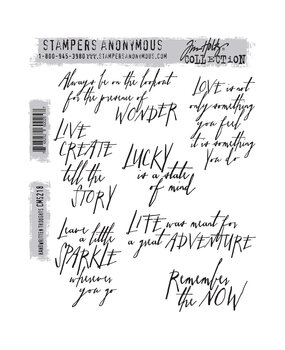 STAMPERS ANONYMOUS
1-800-945-3980 WWW.STAMPERSANONYMOUS.COM
Tim Holtz
COLLECTION
Always be on the lookout
for the presence of
WONDER
LOVE is not
only something
you feel
it is something
you do
LIVE
CREATE
tell the
STORY
LUCKY
is a state
of mind
HANDWRITTEN THOUGHTS CMS218
Leave a little
SPARKLE
wherever
you go
LIFE was meant for
a great ADVENTURE
Remember
the NOW